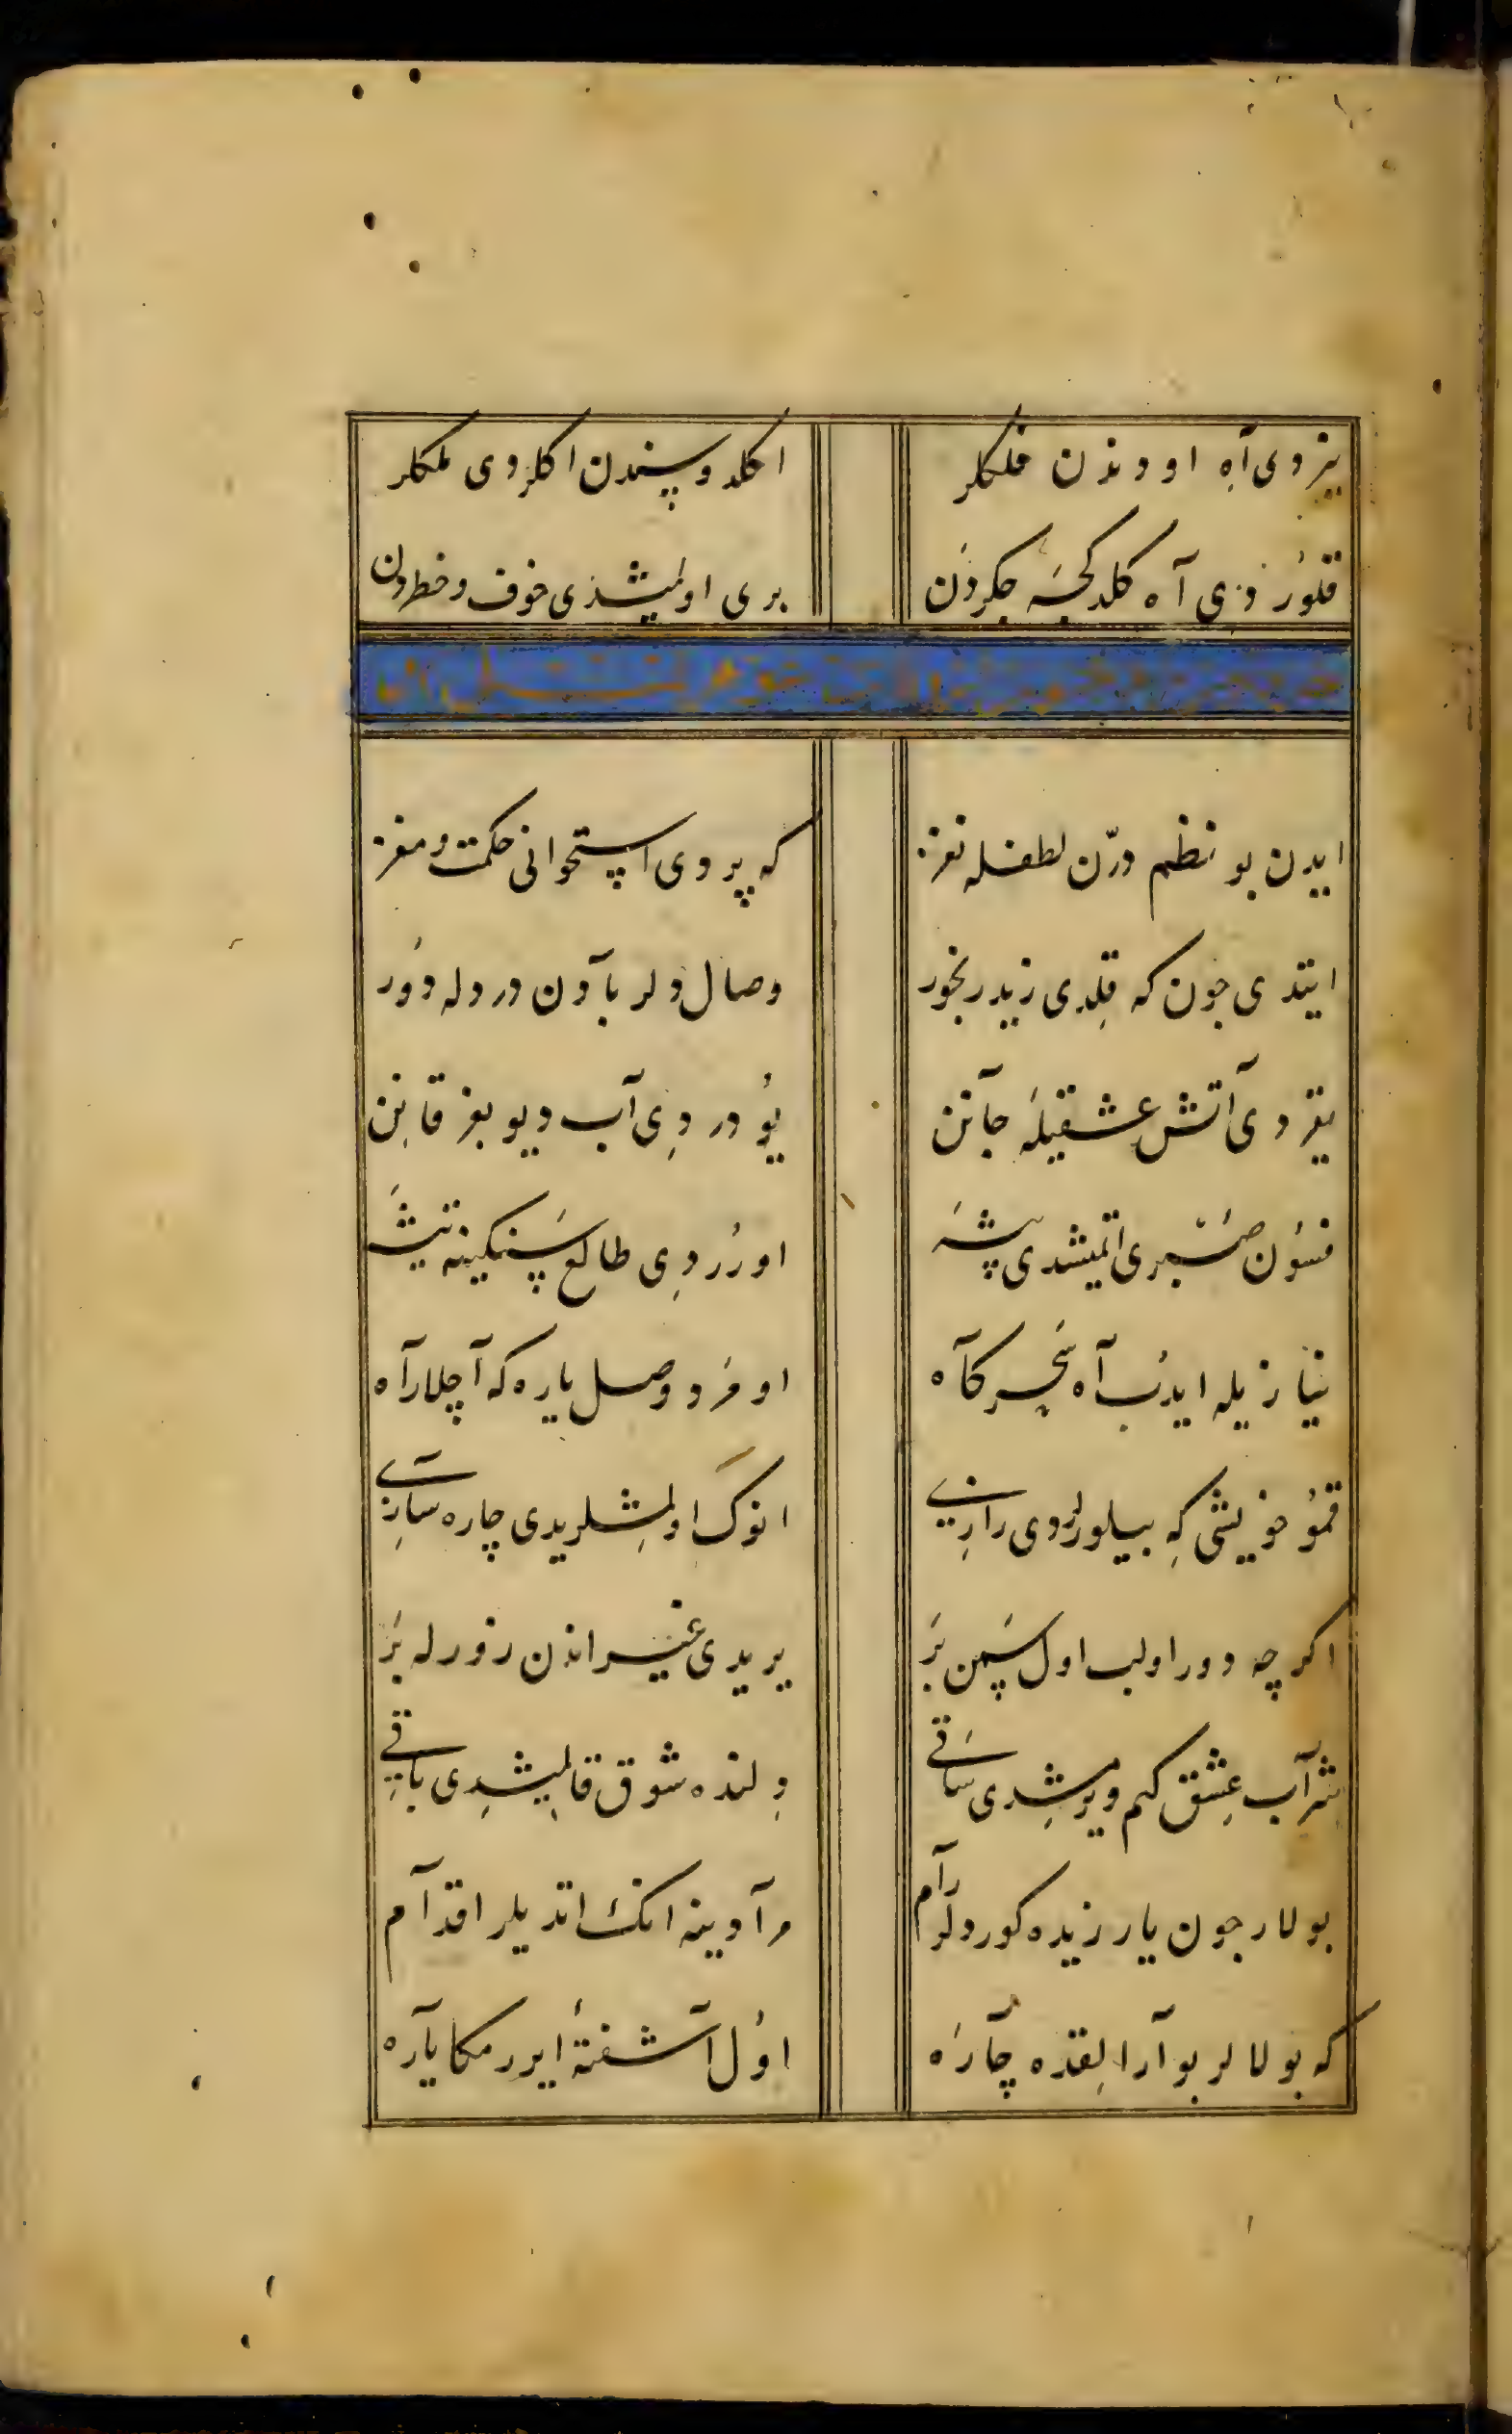 ینردی آه اودندن فلکلر اکلدوسندن اکلردی ملکلر
قلوردی آه کلدکجه جکردن بری اولمشدی خوف و خطردن
ایدن بو نظم درّن لطفله نغز که پروردی استخوانی حکمت و مغز
ایتدی جون که قلدی زید رنجور وصال دلربآدن دردله دور
یقردی آتش عشقیله جآنن یودردی آب دیو بغر قانن
فسون صبری اتمیشدی پیشه اوررد‌ی طالع سنکینه تیشه
نیازیله ایدب آه سحرکآه اومردوصل یاره که آچلا رآه
قمو خویشی که بیلورلردی رازین انوک اولمشلریدی چاره سازین
اکر چه دور اولب اول سیمن بر یریدی غیر اندن زورله بر
شرآب عشق کم ویرمشدی ساقی دلنده شوق قالمیشدی باقی
بولار جون یار زیده کوردلر رآم مرآدینه انک اتدیلر اقدآم
که بولالر بو آرالقده چآره اول آشفتۀ ایرر مکا یآره